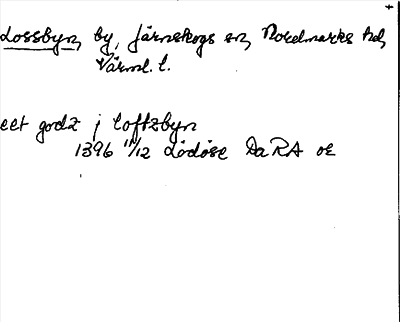 Lossbyn, by, Järnskogs sn, Nordmarks hd,
Värml. l.
eet godz j loftzbyn
1396 11/12 Lödöse DaRA or